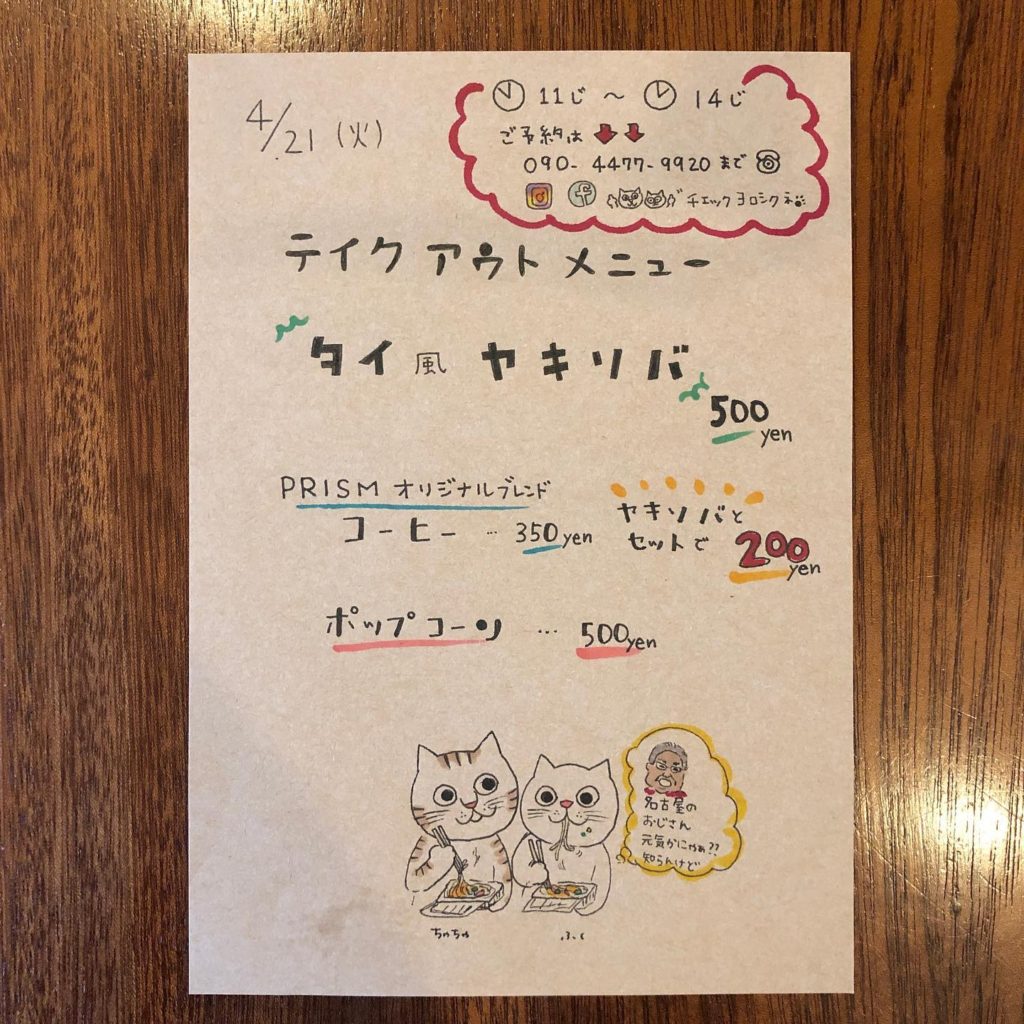 4/21 (火)
11じ ～ 14じ
ご予約は
090-4477-9920 まで
チェックヨロシクネ
テイクアウトメニュー
タイ風ヤキソバ
500yen
PRISM オリジナルブレンド
コーヒー … 350yen
ヤキソバと
セットで 200yen
ポップコーン … 500yen
名古屋の
おじさん
元気かにゃぁ??
知らんけど
ちゅちゅ
ふく